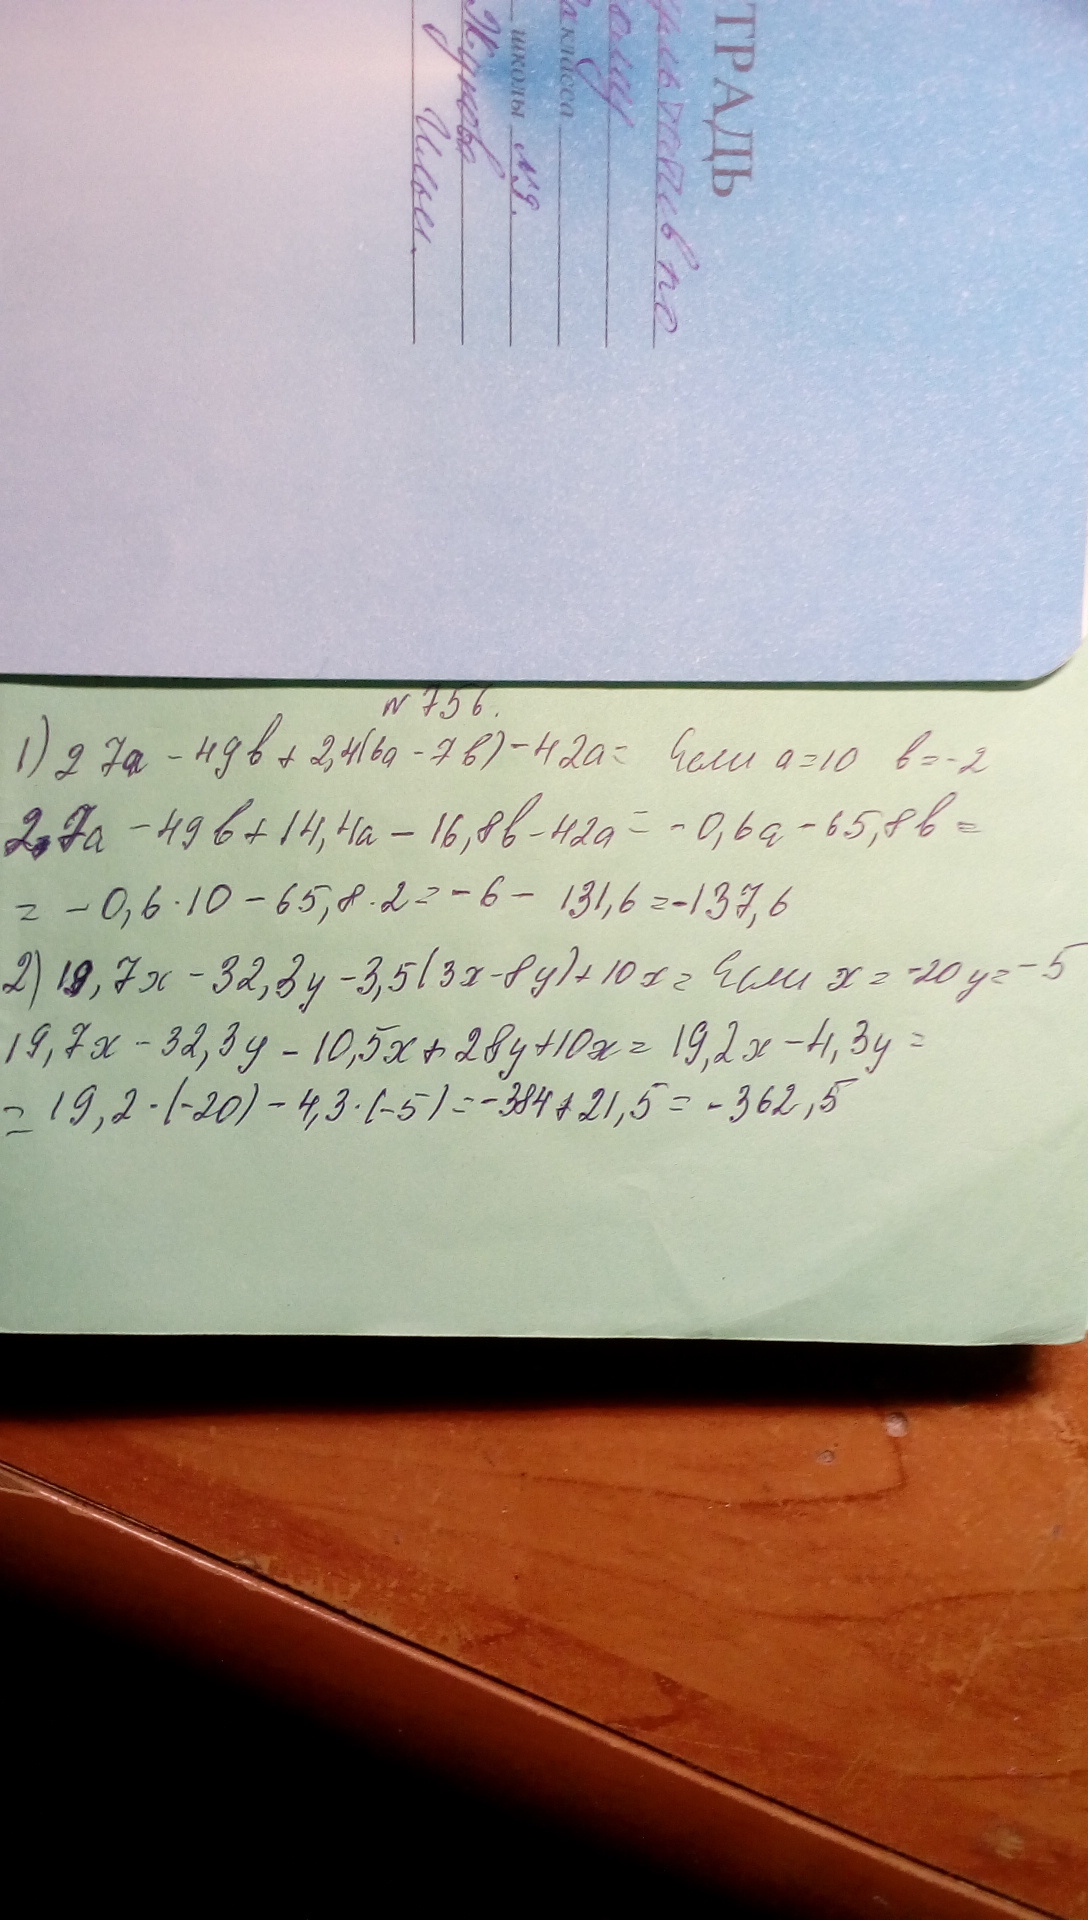 ТРАДЬ
класса
школы №9.
Ильи.
№ 756.
1) 27a - 49в + 2,4(6a - 7в) - 42a = Если a=10 в=-2
2,7a - 49в + 14,4a - 16,8в - 42a = -0,6a - 65,8в =
= -0,6·10 - 65,8·2 = -6 - 131,6 = -137,6
2) 19,7x - 32,3y - 3,5(3x - 8y) + 10x = Если x = -20 y = -5
19,7x - 32,3y - 10,5x + 28y + 10x = 19,2x - 4,3y =
= 19,2·(-20) - 4,3·(-5) = -384 + 21,5 = -362,5